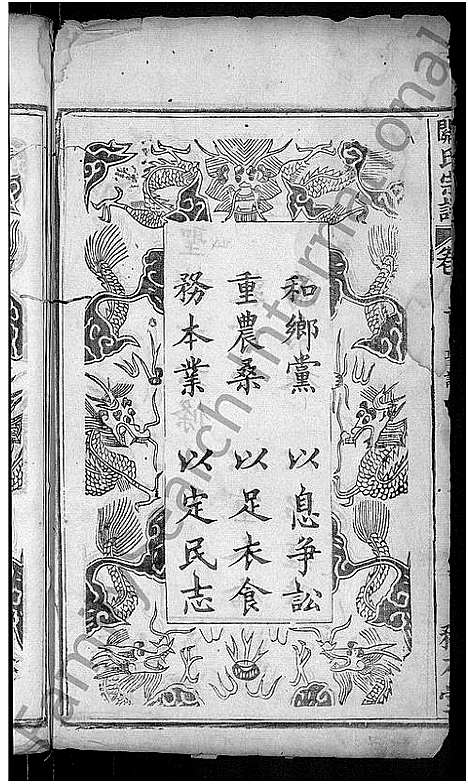 關氏宗譜 卷
和鄉黨 以息爭訟
重農桑 以足衣食
務本業 以定民志
FamilySearch International